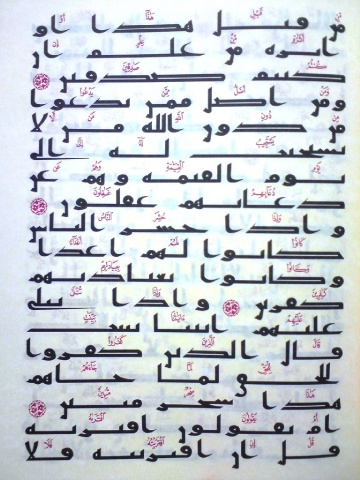 من قبل هذا او
اثره من علم ان
كنتم صدقين
ومن اضل ممن يدعوا
من دون الله من لا
يستجيب له الى
يوم القيمه وهم عن
دعائهم غفلون
واذا حشر الناس
كانوا لهم اعدا
وكانوا بعبادتهم
كفرين واذا تتلى
عليهم ايتنا بينت
قال الذين كفروا
للحق لما جاهم
هذا سحر مبين
ام يقولون افتريه
قل ان افتريته فلا